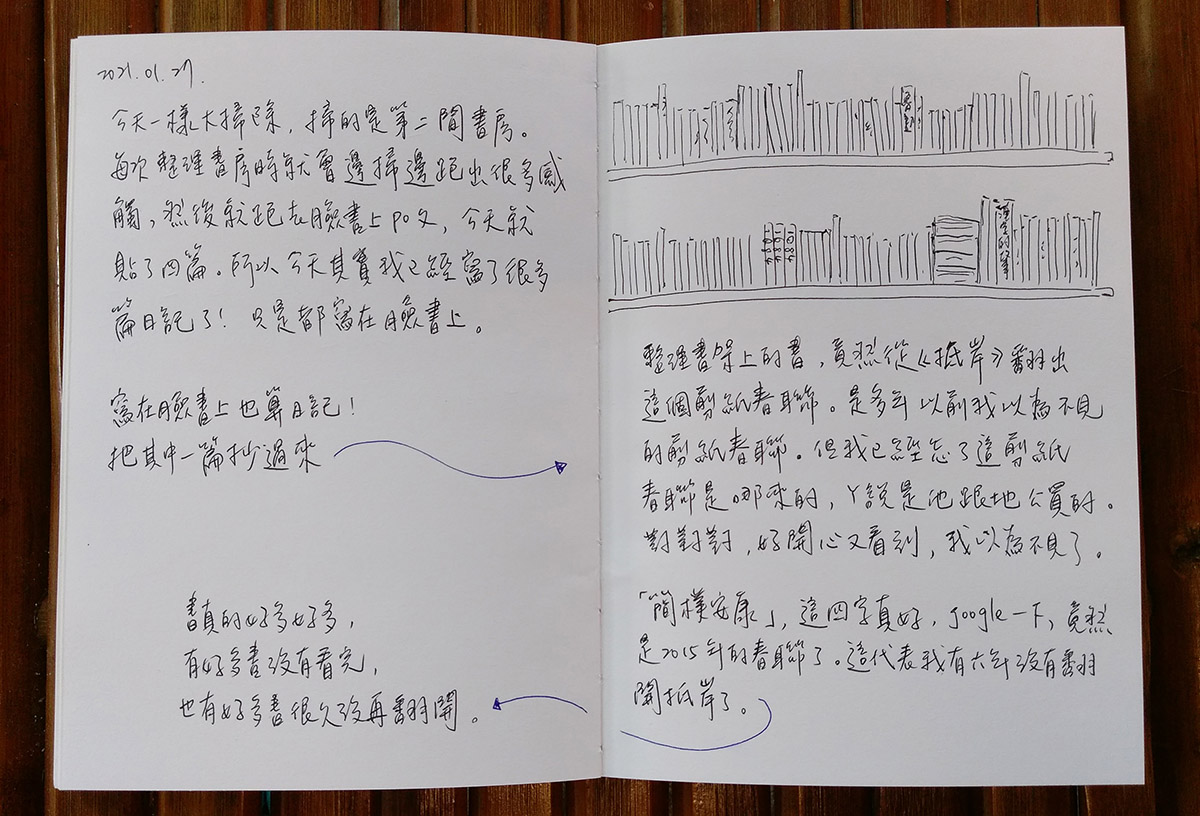 2021.01.27.
今天一樣大掃除，掃的是第二間書房。
每次整理書房時就會邊掃邊跑出很多感
觸，然後就跑去臉書上po文，今天就
貼了四篇。所以今天其實我已經寫了很多
篇日記了！只是都寫在臉書上。
寫在臉書上也算日記！
把其中一篇抄過來
書真的好多好多，
有好多書沒有看完，
也有好多書很久沒再翻開。
1Q84
1Q84
1Q84
整理書架上的書，竟然從《抵岸》翻出
這個剪紙春聯。是多年以前我以為不見
的剪紙春聯。但我已經忘了這剪紙
春聯是哪來的，Y說是他跟地公買的。
對對對，好開心又看到，我以為不見了。
「簡樸安康」，這四字真好，google一下，竟然
是2015年的春聯了。這代表我有六年沒有翻
開抵岸了。